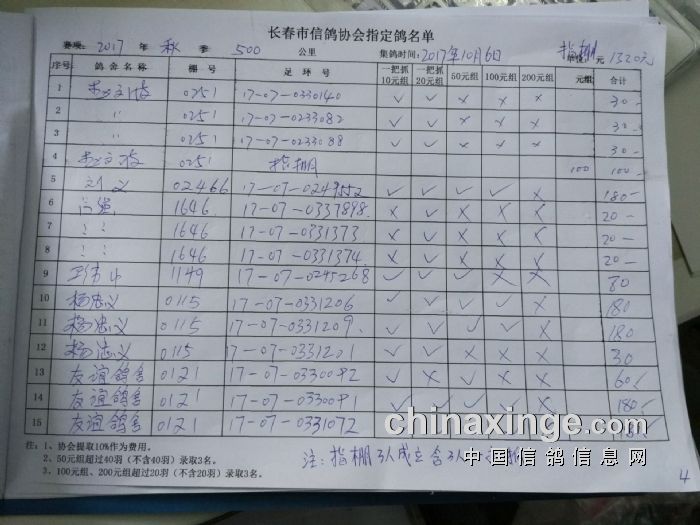 长春市信鸽协会指定鸽名单
赛项: 2017 年 秋 季 500 公里 集鸽时间: 2017年10月6日 指棚 单位: 元 1320元
序号 鸽舍名称 棚号 足环号 一把抓10元组 一把抓20元组 50元组 100元组 200元组 元组 合计
1 0251 17-07-0330140 √ √ × × × 30-
2 〃 0251 17-07-0233082 √ √ × × × 30-
3 〃 0251 17-07-0233088 √ √ × × × 30-
4 0251 指棚 100 100-
5 刘义 02466 √ √ √ √ × 180-
6 1646 17-07-0337898 × √ × × × 20-
7 〃 1646 17-07-0331373 × √ × × × 20-
8 〃 1646 17-07-0331374 × √ × × × 20-
9 1149 17-07-0245268 √ √ √ × × 80
10 杨忠义 0115 17-07-0331206 √ √ √ √ × 180
11 杨忠义 0115 17-07-0331209 √ √ √ √ × 180
12 杨忠义 0115 17-07-0331201 √ √ × × × 30
13 友谊鸽舍 0121 17-07-0330092 √ × √ × × 60-
14 友谊鸽舍 0121 17-07-0330091 √ √ √ √ × 180-
15 友谊鸽舍 0121 17-07-0331072 √ √
注: 1、协会提取10%作为费用。
2、50元组超过40羽（不含40羽）录取3名。
3、100元组、200元组超过20羽（不含20羽）录取3名。
注: 指棚3人成立含3人
chinaxinge.com
中国信鸽信息网
4